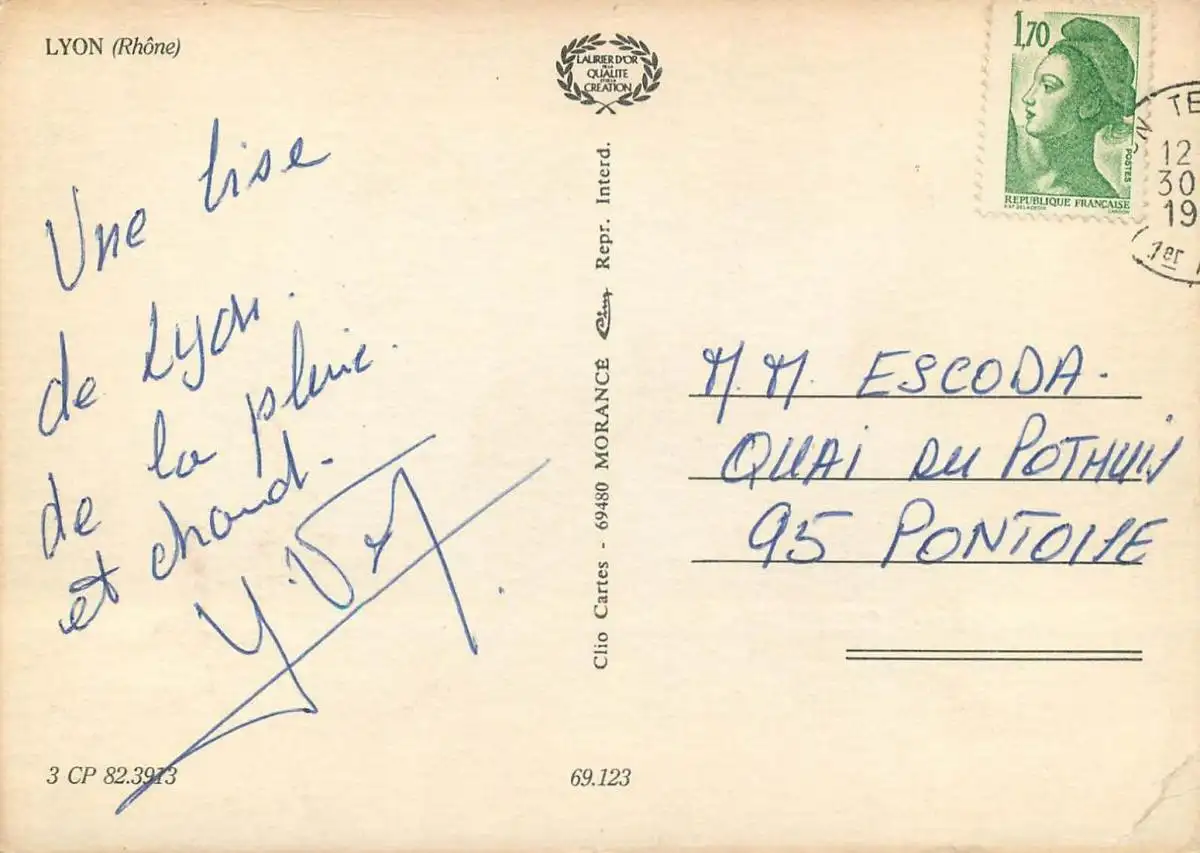 LYON (Rhône)
LAURIER D'OR
DE LA
QUALITE
ET DE LA
CREATION
1,70
POSTES
REPUBLIQUE FRANÇAISE
TE
12
30
19
1er
Une bise
de Lyon.
de la pluie.
et chaud.
M.M. ESCODA.
QUAI DU POTHUIS
95 PONTOISE
Clio Cartes - 69480 MORANCÉ Repr. Interd.
3 CP 82.3913
69.123